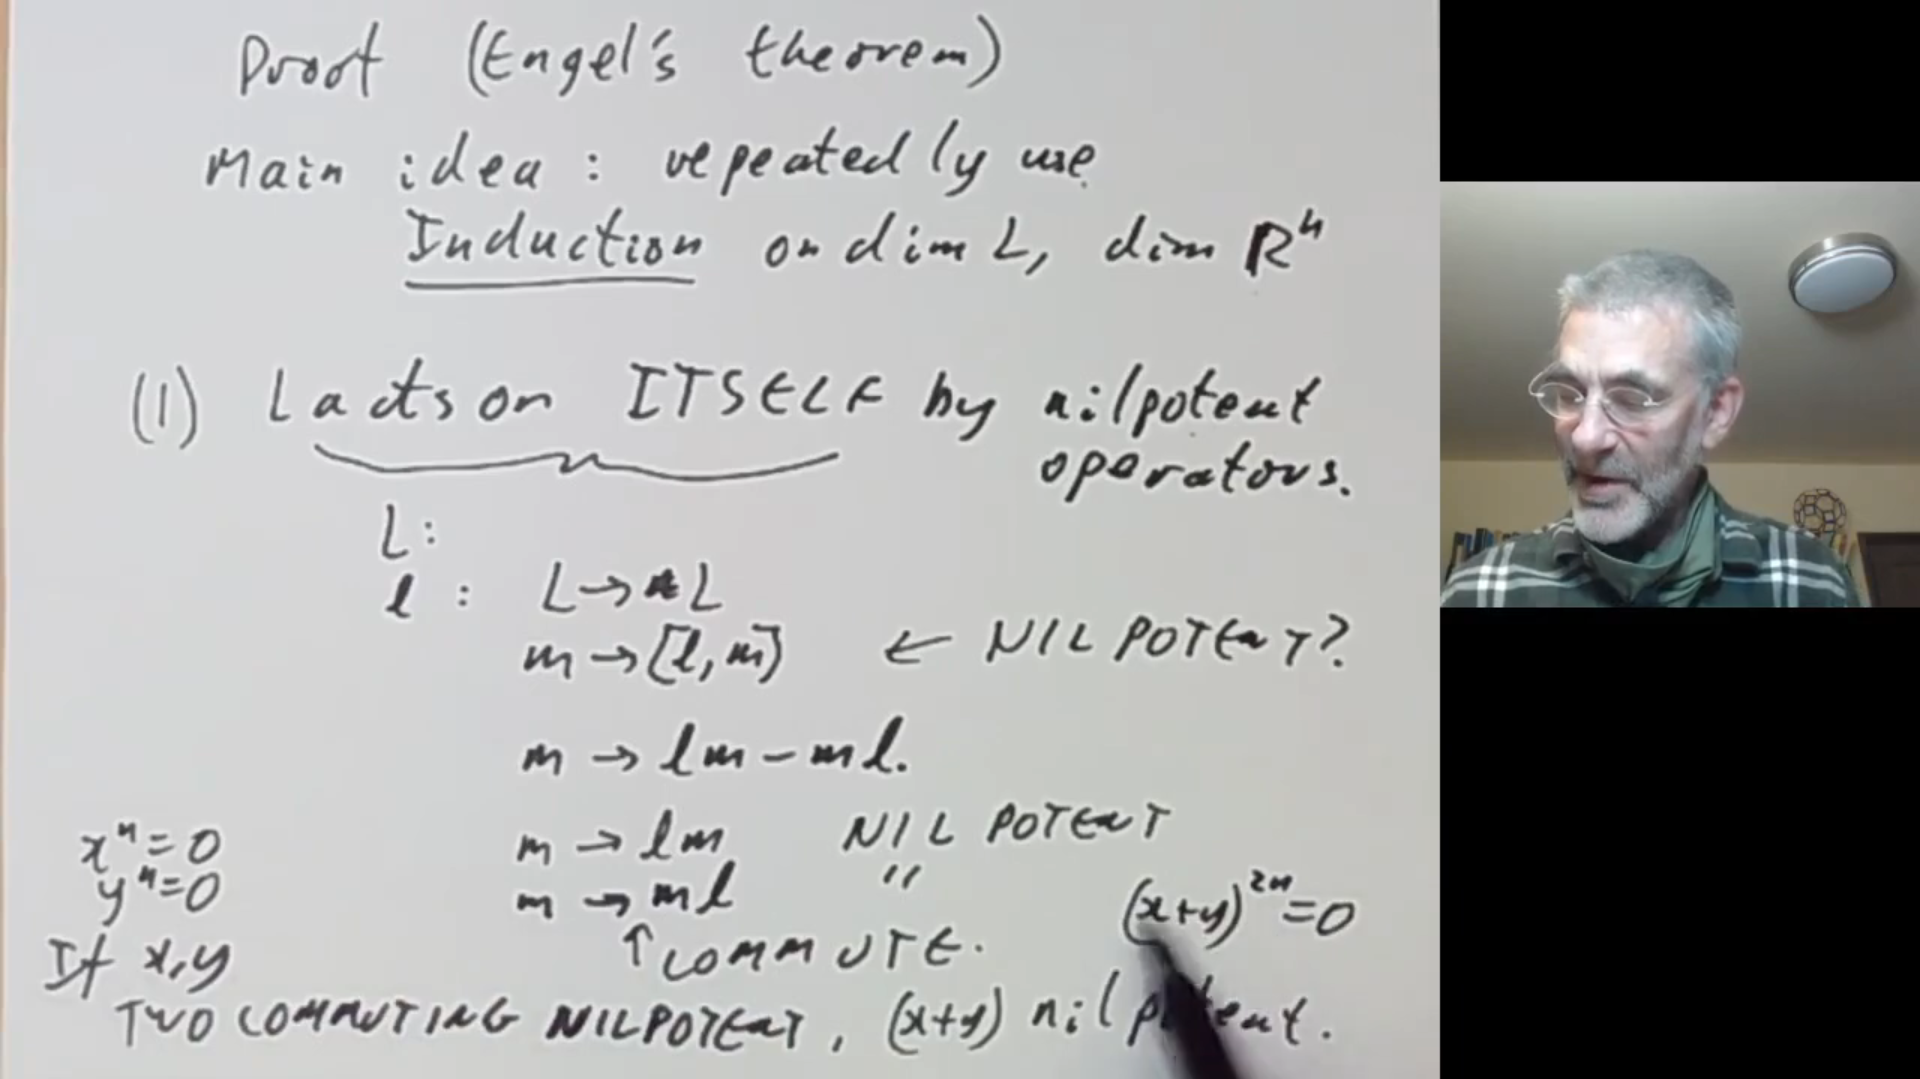 Proof (Engel's theorem)
Main idea : repeatedly use
Induction on dim L, dim Rⁿ
(1) L acts on ITSELF by nilpotent
operators.
L:
l : L → L
m → [l, m] ← NILPOTENT?
m → lm - ml.
xⁿ = 0 m → lm NILPOTENT
yⁿ = 0 m → ml "
(x+y)²ⁿ = 0
If x, y ↑ COMMUTE.
TWO COMMUTING NILPOTENT, (x+y) nilpotent.